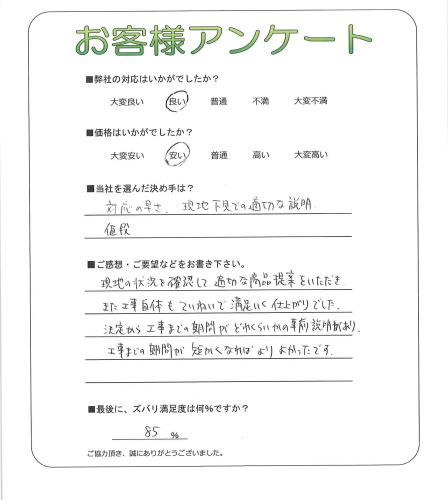 お客様アンケート
■弊社の対応はいかがでしたか？
大変良い 良い 普通 不満 大変不満
■価格はいかがでしたか？
大変安い 安い 普通 高い 大変高い
■当社を選んだ決め手は？
対応の早さ、現地下見での適切な説明
値段
■ご感想・ご要望などをお書き下さい。
現地の状況を確認して適切な商品提案をいただき
また工事自体もていねいで満足いく仕上がりでした。
決定から工事までの期間がどれくらいかの事前説明があり、
工事までの期間が短かくなればよりよかったです。
■最後に、ズバリ満足度は何％ですか？
85 %
ご協力頂き、誠にありがとうございました。